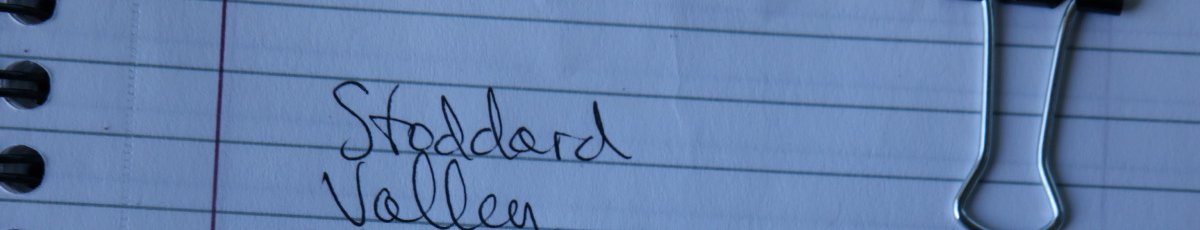 Stoddard
Vallen